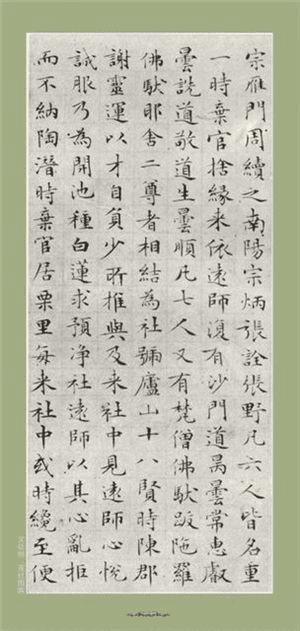 宗雁門周續之南陽宗炳張詮張野凡六人皆名重
一時棄官捨緣来依遠師復有沙門道昺曇常惠叡
曇詵道敬道生曇順凡七人又有梵僧佛馱跋陁羅
佛馱耶舍二尊者相結為社號廬山十八賢時陳郡
謝靈運以才自負少所推與及来社中見遠師心悅
誠服乃為開池種白蓮求預净社遠師以其心亂拒
而不納陶潛時棄官居栗里每来社中或時纔至便